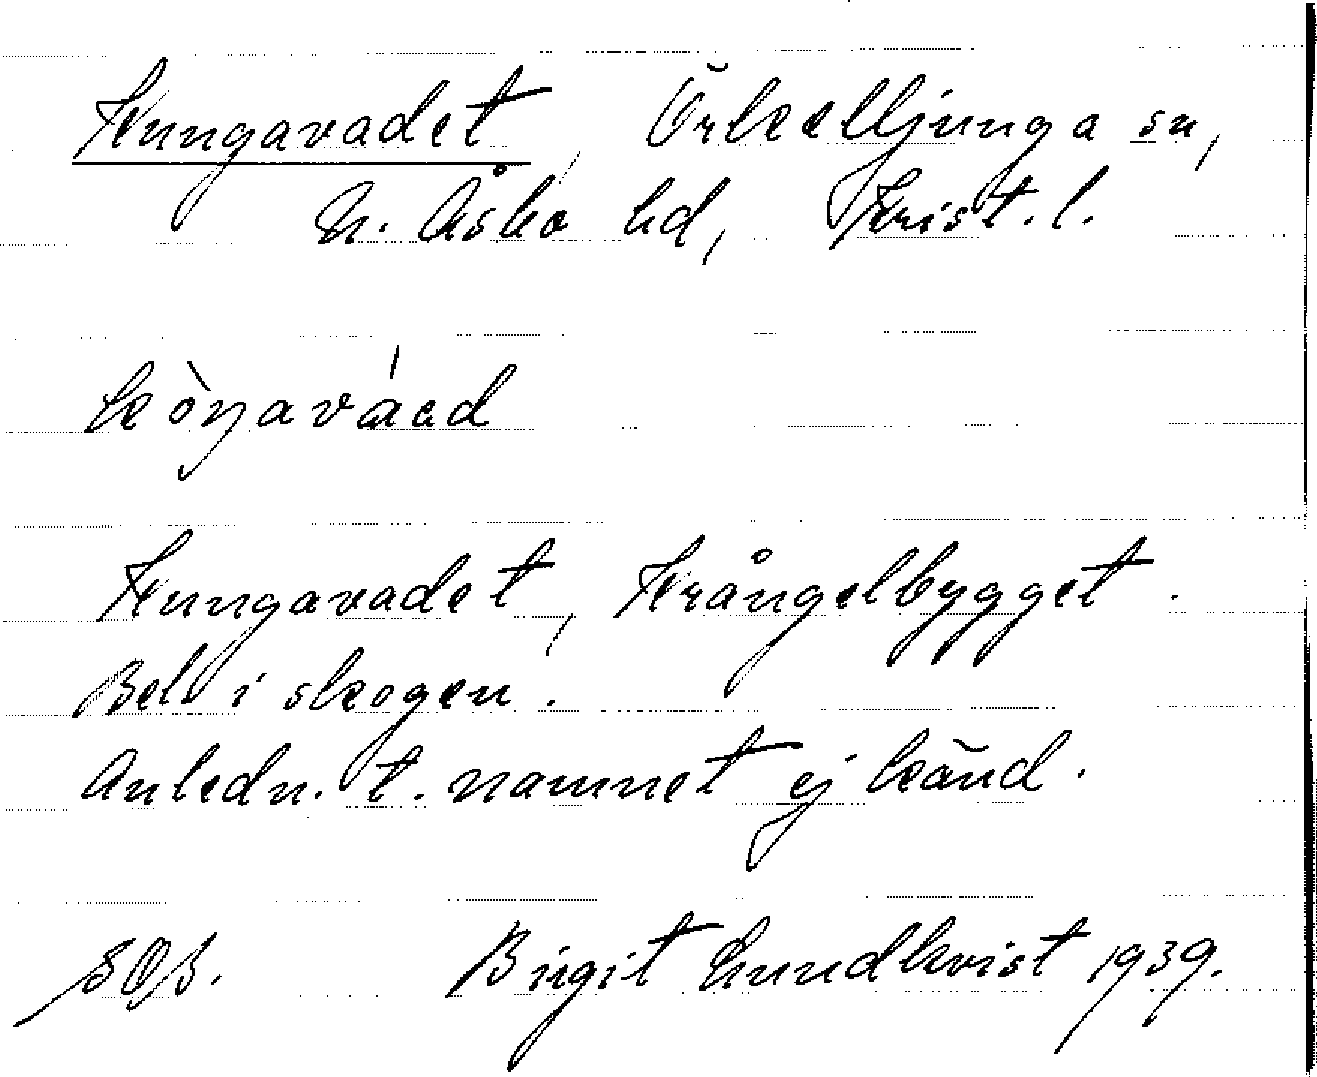 Kungavadet, Örkelljunga sn,
N. Åsbo hd, Krist. l.
kòŋava̍ad
Kungavadet, Krångelbygget.
Bel. i skogen.
Anledn. t. namnet ej känd.
SOB. Birgit Lundkvist 1939.